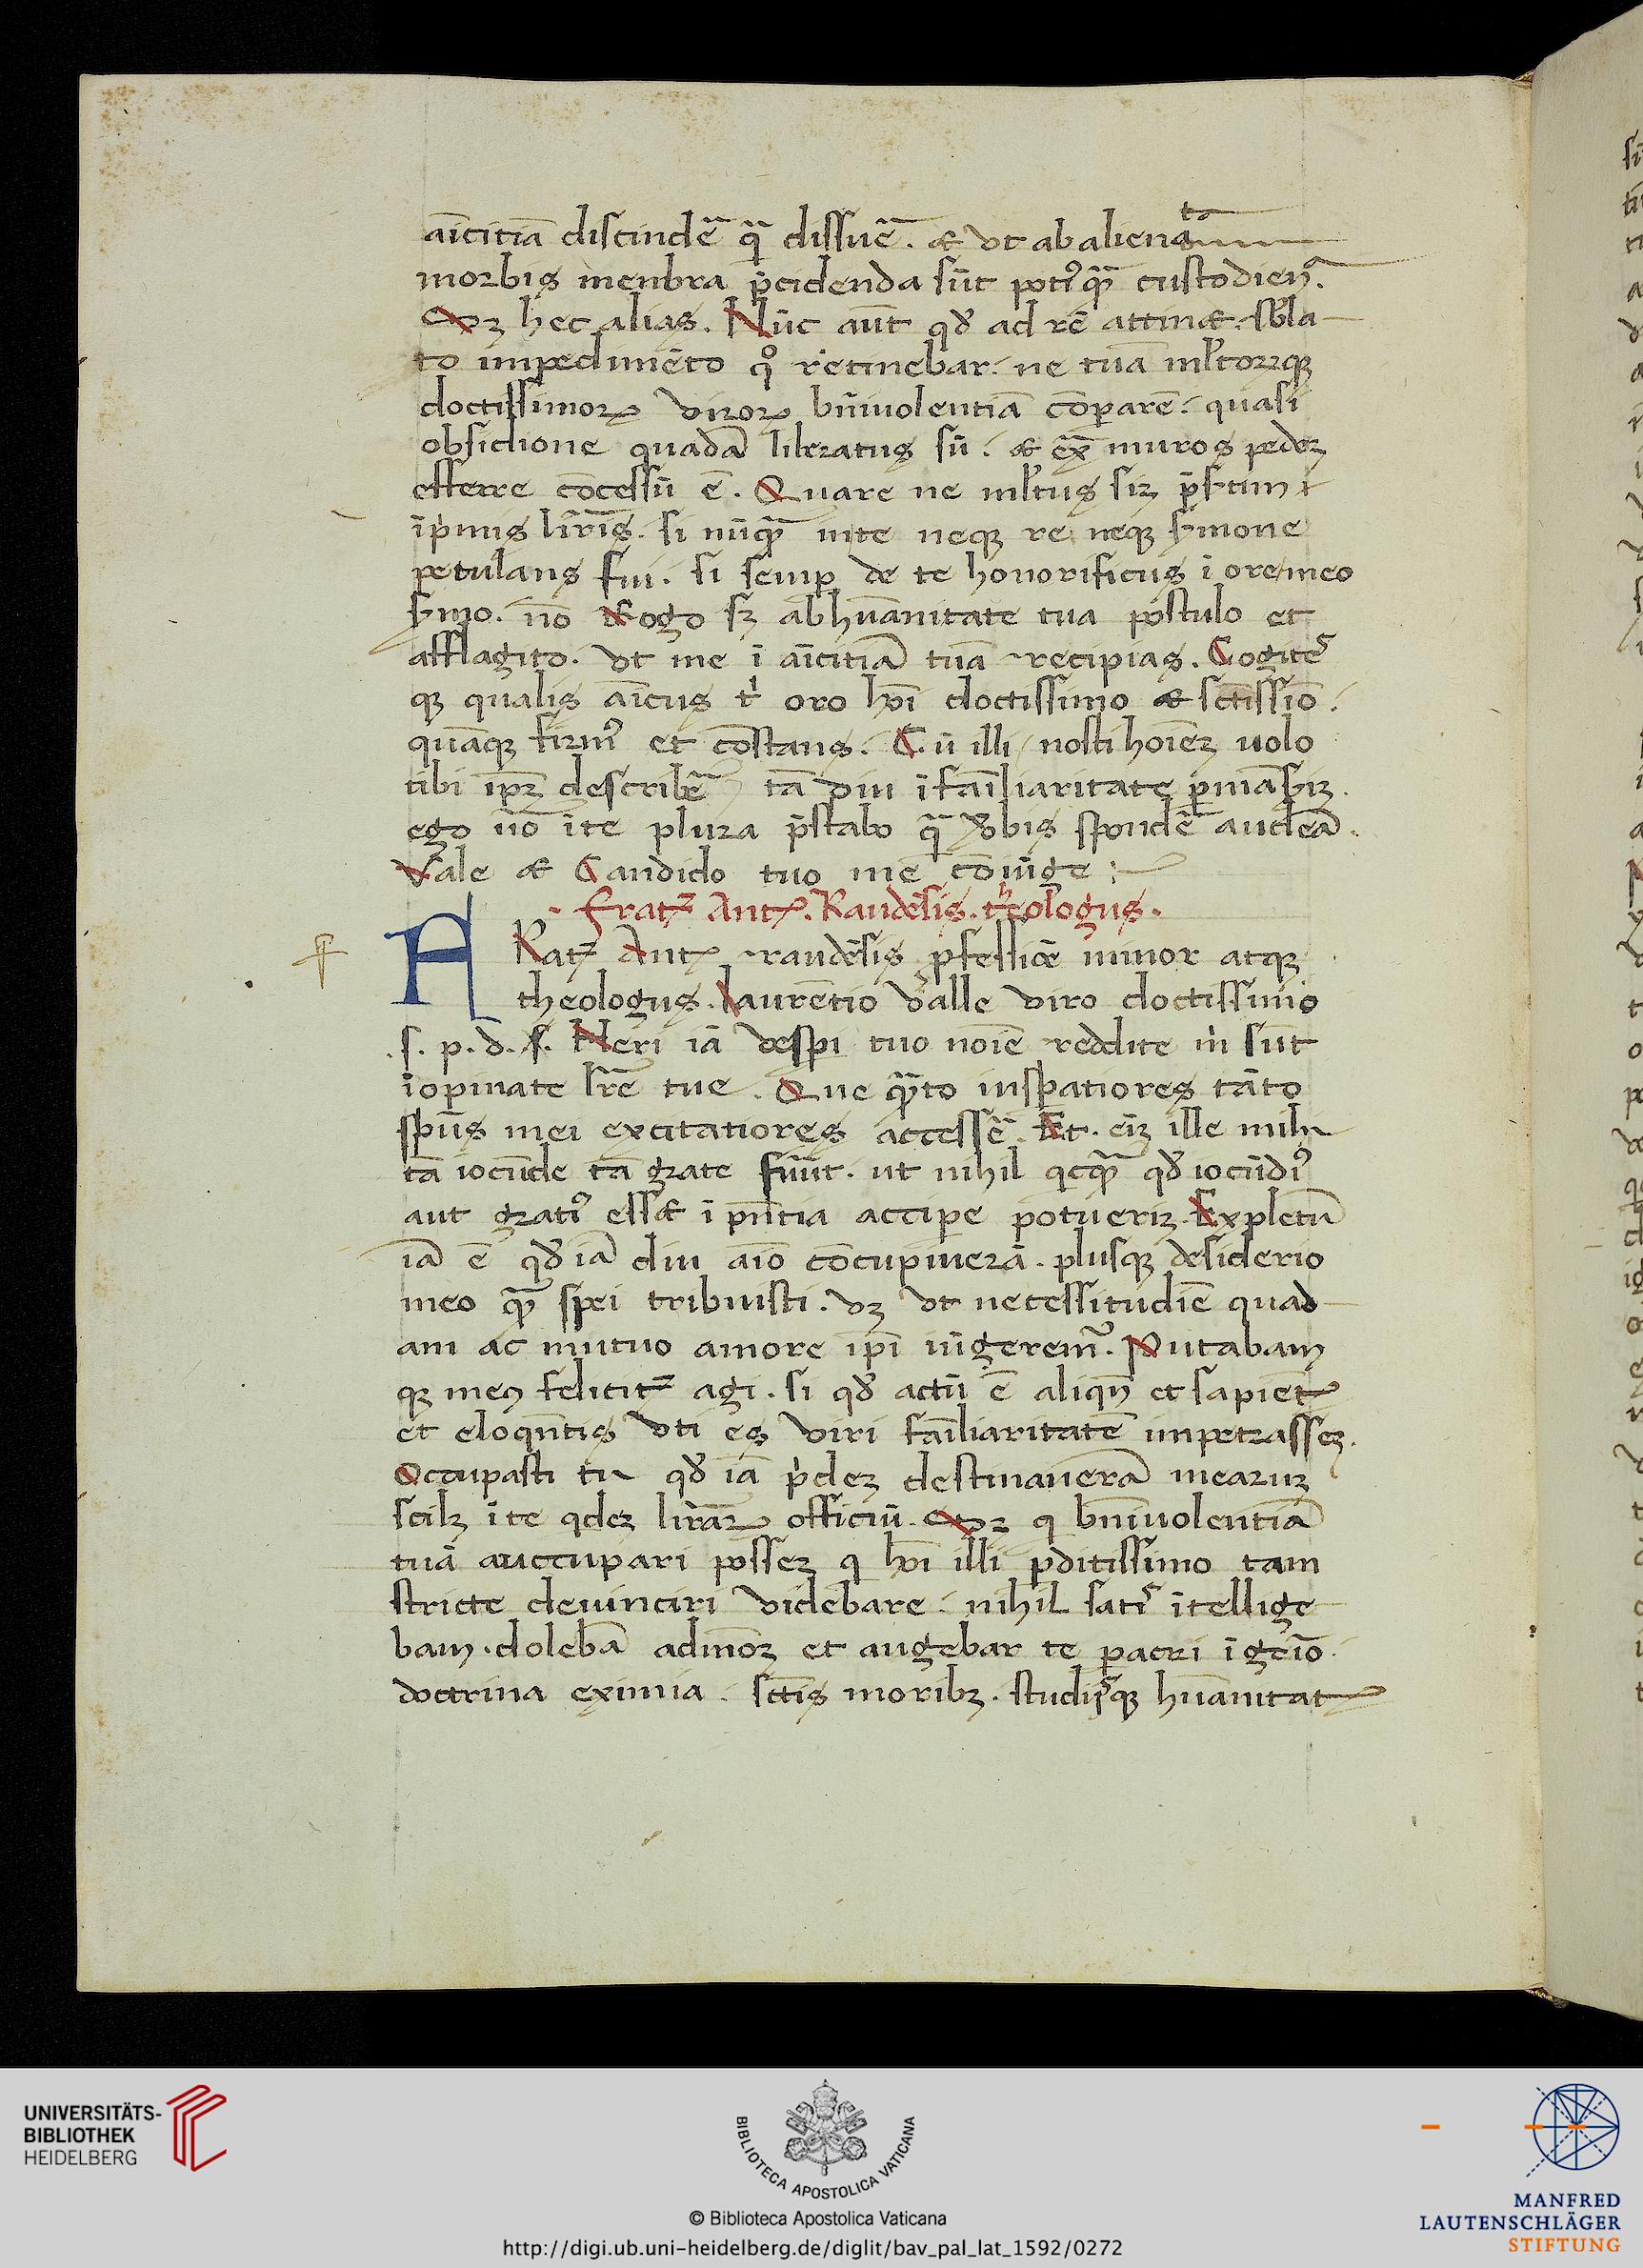 aīcitiā discindē q̄ dissuē. & vt ab aliena ta
morbis menbra p̄cidenda sūt poti9 q̄ custodien.
Sz hec alias. Nūc aūt qđ ad rē attin&. sbla
to impedimēto q̊ retinebar. ne tuā ml̄torꝝqꝫ
doctissimoꝝ viroꝝ bn̄iuolentiā cōparē. quasi
obsidione quadā liberatus sū. & ex̄ muros pedeꝫ
efferre cōcessū ē. Quare ne ml̄tus siꝫ p̄sertim i
īpmis lr̄is. si nūq̄ in te neqꝫ re neqꝫ sermone
petulans fui. si semꝑ de te honorificus ī ore meo
sermo. nō Rogo sꝫ ab hūanitate tua postulo et
afflagito. vt me ī aīcitiā tuā recipias. Cogites
qꝫ qualis aīcus tͥ oro hoī doctissimo & sctissīo.
quāqꝫ firm9 et cōstans. Cū illi nosti hoīeꝫ uolo
tibi ipꝫ describē tā diu ī faīliaritate ꝑmāserіꝫ.
ego ūo ī te plura p̄stabo q̄ ỽbis spondē audeā.
Vale & Candido tuo me cōiūge :
Frat̄ Ant. Raudēsis. theologus.
F
Rat̄ Ant raudēsis ꝓfessiōe minor atqꝫ
theologus. laurētio valle viro doctissimo
s. p. d. s. Heri iā vesperi tuo noīe reddite mͥ sūt
īopinate lr̄e tue. Que q̄to insperatiores tāto
spūs mei excitatiores accessē. Et. eiꝫ ille mihi
tā iocūde tā grate fūut. ut nihil qcq̄ qđ iocūdi9
aut grati9 ess& ī pn̄tia accipe potueriꝫ. Expletū
iā ē qđ iā diu aīo cōcupiuerā. plusqꝫ desiderio
meo q̄ spei tribuisti. vꝫ vt necessitudīe quad
am ac mutuo amore ipī iūgerem. Putabam
qꝫ mecū felicit̄ agi. si qđ actū ē aliqn̄ et sapiēt
et eloqn̄tis vti es viri faīliaritatē impetrasseꝫ.
Occupasti tu qđ iā p̍deꝫ destinauerā mearuꝫ
scilꝫ ī te qdeꝫ lr̄aꝝ officiū. Sꝫ q bn̄iuolentiā
tuā auccupari posseꝫ q hoī illi ꝑditissimo tam
stricte deuinciri videbare. nihil satis ītellige
bam. dolebā admoꝫ et angebar te patri īgēio.
doctrina eximia. sctis moribꝫ. studiisqꝫ hūanitat
UNIVERSITÄTS-
BIBLIOTHEK
HEIDELBERG
BIBLIOTECA APOSTOLICA VATICANA
© Biblioteca Apostolica Vaticana
http://digi.ub.uni-heidelberg.de/diglit/bav_pal_lat_1592/0272
MANFRED
LAUTENSCHLÄGER
STIFTUNG